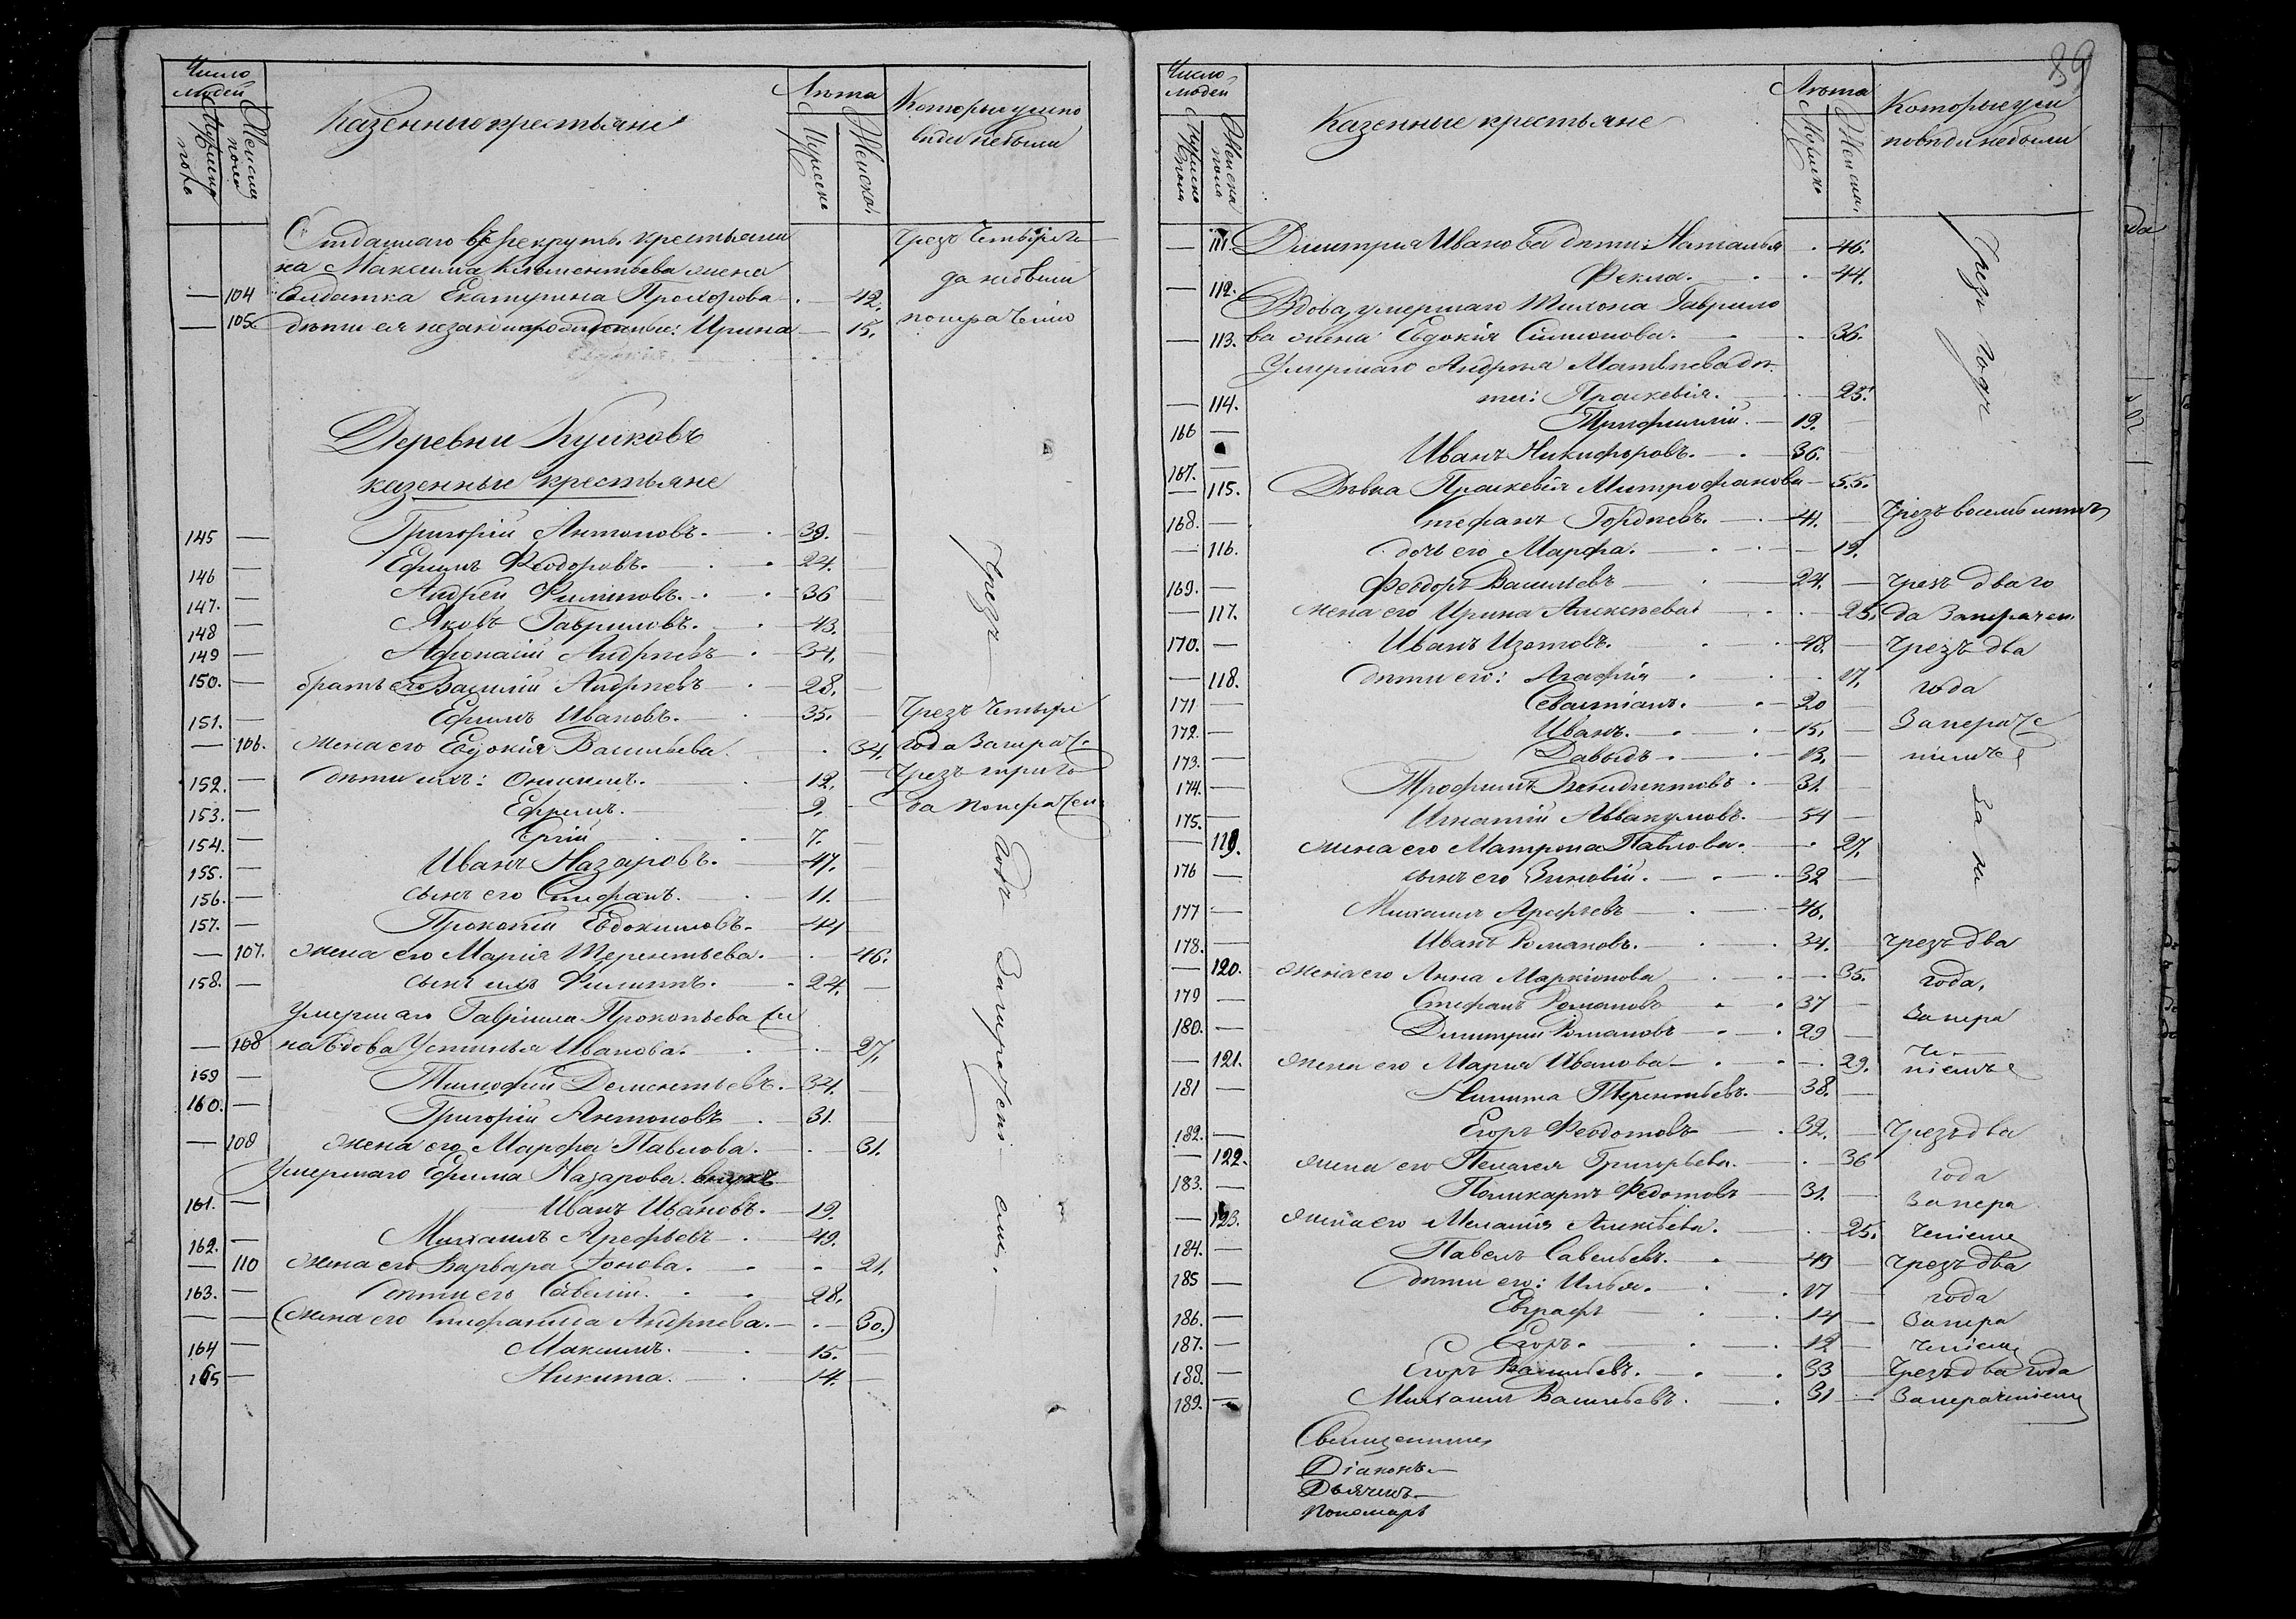 Число людей
Мужеска пола
Женска пола
Казенные крестьяне
Лѣта
Мужеска
Женска.
Которые у исповѣди не были
Отданнаго въ рекруты крестьяни
на Максима Климентьева жена
— 104 Солдатка Екатерина Прохорова — 42.
— 105. дѣти ея незаконнорожденные: Ирина — 15.
Чрезъ четыре го
да
Деревни Куликовъ
казенные крестьяне
145 — Григорій Антоновъ. — 39.
146 — Ефимъ Ѳеодоровъ. — 24.
147. — Андрей Филиповъ. — 36
148 — Яковъ Гавриловъ. — 43.
149 — Афонасій Андрѣевъ — 34.
150. — братъ его Василій Андрѣевъ — 28.
151. — Ефимъ Ивановъ. — 35. — Чрезъ четыре
— 106. жена его Евдокія Васильева. — 34. года
152. — дѣти ихъ: Онисимъ. — 12. Чрезъ три го
153. — Ефремъ. — 9. да
154. — — 7.
155. — Иванъ Назаровъ. — 47.
156. — сынъ его Стефанъ. — 11.
157. — Прокопій Евдокимовъ. — 44
— 107. жена его Марія Терентьева. — 46.
158. — сынъ ихъ Филиппъ. — 24.
Умершаго Гавріила Прокопьева
— 108 Вдова Устинья Иванова. — 27.
159 — Тимофей Дементьевъ. — 34.
160. — Григорій Антоновъ — 31.
— 109 жена его Марфа Павлова. — 31.
Умершаго Ефима Назарова внукъ
161. — Иванъ Ивановъ. — 19.
162. — Михаилъ Арефьевъ — 49.
— 110 жена его Варвара Іонова. — 21.
163. — дѣти его Савелій. — 28.
— — (жена его Стефанида Андрѣева. — 30.)
164 — Максимъ. — 15.
165 — Никита. — 14.
Чрезъ — годъ
39
Число людей
Мужеска пола
Женска пола
Казенные крестьяне
Лѣта
Мужеска
Женска.
Которые у исповѣди не были
— 111. Димитрія Иванова дѣти: Наталья — 46.
— 112. Фекла. — 44.
Вдова, умершаго Тихона Гаврило
— 113. ва жена Евдокія Симонова. — 36.
Умершаго Андрея Матвѣева дѣ
— 114. ти: Праскевія. — 25.
166 — — 19.
167. — Иванъ Никифоровъ. — 36.
— 115. Дѣвка Праскевія Митрофанова — 55.
168. — Стефанъ Гордѣевъ. — 41. — Чрезъ восемь лѣтъ
— 116. дочь его Марфа. — 19.
169. — Феодоръ Васильевъ — 24. — чрезъ два го
— 117. жена его Ирина Алексѣева — 25. да
170. — Иванъ Изотовъ. — 48. — Чрезъ два
— 118. дѣти его: Агафія — 17. года
171 — Севастіанъ. — 20
172. — Иванъ. — 15.
173. — Давыдъ. — 13.
174. — Трофимъ Венидиктовъ — 31.
175. — Игнатій Аввакумовъ. — 54
— 119. жена его Матрона Павлова. — 27.
176 — сынъ его Зиновій. — 32
177 — Михаилъ Арефьевъ — 46.
178. — Иванъ Романовъ. — 34. — чрезъ два
— 120. жена его Анна Маркіонова — 35. года,
179 — Стефанъ Романовъ — 37
180. — Димитрій Романовъ — 29
— 121. жена его Марія Иванова — 29.
181 — Никита Терентьевъ. — 38.
182. — Егоръ Феодотовъ — 32. — Чрезъ два
— 122. жена его Пелагея Григорьева. — 36 года
183. — Поликарпъ Федотовъ — 31.
— 123. жена его Меланія Алексѣева. — 25.
184. — Павелъ Савельевъ. — 49 — чрезъ два
185 — дѣти его: Илья. — 17 года
186. — Евграфъ — 14
187. — Егоръ. — 12
188. — Егоръ Васильевъ. — 33 — Чрезъ два года
189. — Михаилъ Васильевъ. — 31
Чрезъ годъ
Священникъ
Діаконъ
Дьячекъ
Пономарь